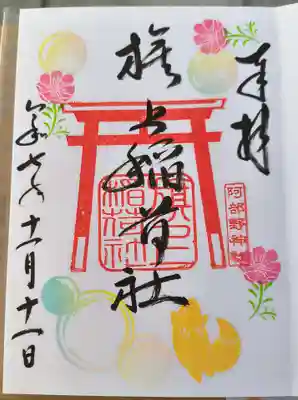 奉拝
旗上稲荷社
阿部野神社
令和七年十一月十一日